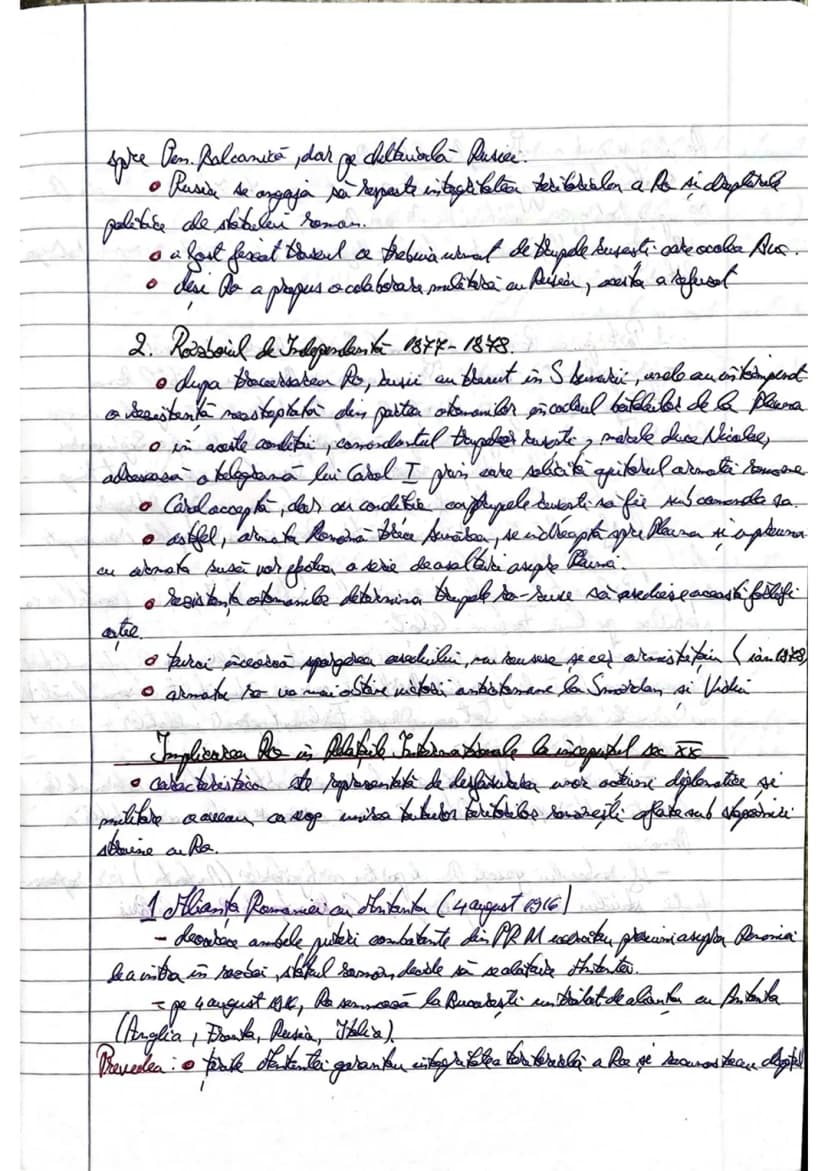 spre Pen. Balcanică, dar pe cheltuiala Rusiei.
• Rusia se angaja să respecte integritatea teritorială a Ro și drepturile
politice ale statului roman.
• a fost fixat traseul ce trebuia urmat de trupele rusești care ocolea Buc.
• desi Ro a propus o colaborare militară cu Rusia, aceasta a refuzat
2. Războiul de Independentă 1877-1878.
• dupa traversarea Ro, rusii au trecut in S Dunării, unde au intâmpinat
o rezistentă neasteptată din partea otomanilor în cadrul bătăliilor de la Plevna
• in aceste conditii, comandantul trupelor rusesti, marele duce Nicolae,
adresează o telegramă lui Carol I prin care solicită ajutorul armatei romane
• Carol acceptă, dar cu conditia ca trupele rusesti sa fie sub comanda sa.
• astfel, armata Română trece Dunărea, se indreaptă spre Plevna si impreuna
cu armata rusă vor efectua o serie de asalturi asupra Plevnei.
• rezistenta otomanilor determina trupele ro-ruse să asedieze această fortifi
catie.
• turcii încearcă spargerea asediului, nu reusesc și cer armistițiu (ian 1878)
• armata ro va mai obtine victorii antiotomane la Smârdan și Vidin
Implicarea Ro in Relatiile Internationale la inceputul sec XX
• caracteristica este reprezentată de desfasurarea unor actiuni diplomatice si
militare ce aveau ca scop unirea tuturor teritoriilor românești aflate sub stapaniri
străine cu Ro.
1 Alianța Romaniei cu Antanta (4 august 1916)
- deoarece ambele puteri combatante din PRM exercitau presiuni asupra Romaniei
de a intra in razboi, statul roman decide să se alăture Antantei.
- pe 4 august 1916, Ro semnează la Bucuresti un tratat de alianta cu Antanta
(Anglia, Franta, Rusia, Italia).
Prevedea: • țarile Antantei garantau integritatea teritorială a Ro și recunosteau dreptul